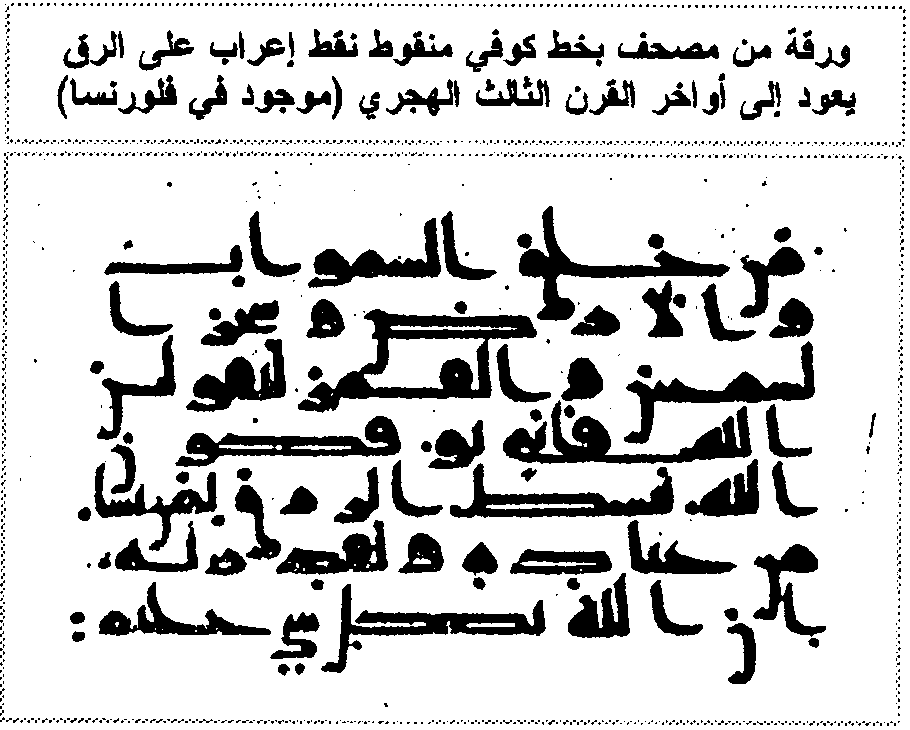 ورقة من مصحف بخط كوفي منقوط نقط إعراب على الرق
يعود إلى أواخر القرن الثالث الهجري (موجود في فلورنسا)
من خلق السموت
والارض وسخر ا
لشمس والقمر ليقولن
الله فانى يوفكون
الله يبسط الرزق لمن يشا
من عباده ويقدر له
ان الله بكل شي عليم